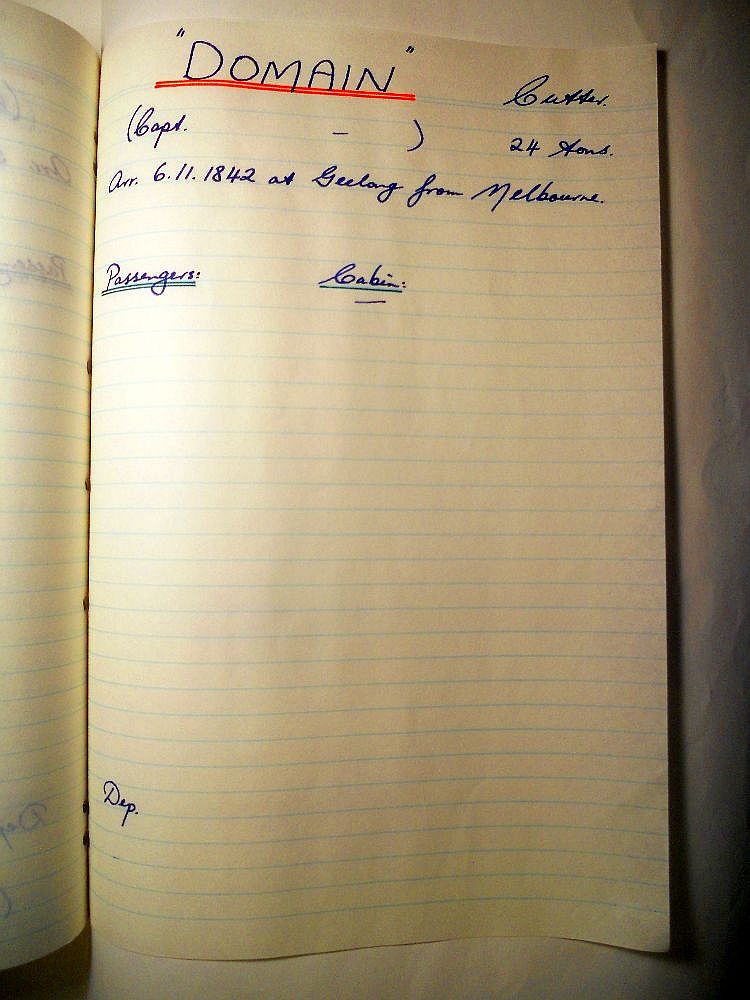 "DOMAIN"
Cutter.
(Capt. - )
24 Tons.
Arr. 6.11.1842 at Geelong from Melbourne.
Passengers: Cabin:
—
Dep.